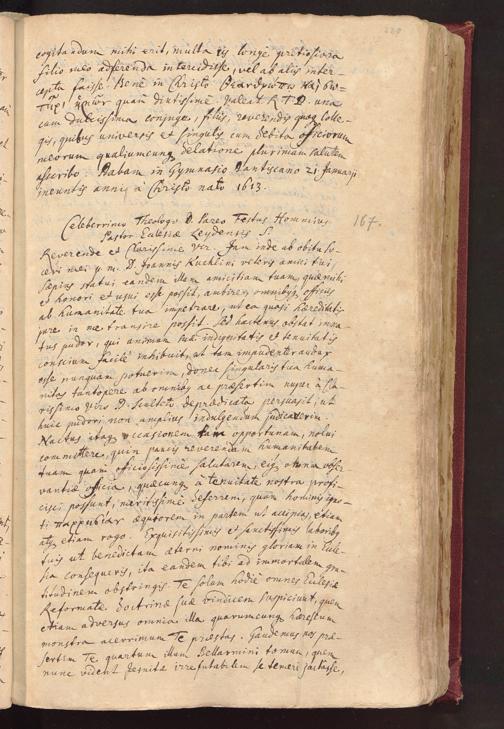 cogitandum mihi erit, multa is longe pretiosiora
filio meo adferenda intercidisse, vel ab aliis inter-
cepta fuisse. Bene in Christo
quam diutissime valeat R. T. D. una
cum dulcissima conjuge, filiis, reverendis quoq colle-
gis, quibus universis et singulis cum debita officiorum
meorum qualiumcunq delatione plurimam salutem
ascribo Dabam in Gymnasio Dantiscano 21 Januarij
ineuntis anni à Christo nato 1613.
Celeberrimo Theologo D. Pareo Festus Hommius
Pastor Eulesiæ Leydensis S. 167.
Reverende et Clarissime Vir. Jam inde ab obitu So-
ceri mei p. m. D. Joannis Kuchlini veteris amici tui,
sæpius statui eandem illam amicitiam tuam, quæ mihi
et honori et usui esse possit, ambire omnibusq officiis
ab humanitate tua impetrare, ut ea quasi hæreditatis
jure in me transire possit. Sed hactenus obstat mea-
tus pudor, qui animum suæ indignitatis et tenuitatis
conscium facile inhibuit, ut tam impudenter audax
esse nunquam potuerim, donec singularis tua huma-
nitas tantopere ab omnibq ac præsertim nuper à Cla-
rissimo viro D. Sculteto deprædicata persuasit, ut
huic pudori non amplius indulgendum judicaverim.
Nactus itaq occasionem tam opportunam, nolui
committere, quin paucis reverendam humanitatem
tuam quam officiosissimè salutarem, eiq omnia obser
vantiæ officia, quæcunq à tenuitate nostra profi-
cisci possunt, deferrem, quam hominis igno-
ti æquiorem in partem ut accipias, etiam
atq etiam rogo. Exquisitissimis et sanctissimis laboribq
tuis ut benedictam æterni nominis gloriam in Eccle-
sia consequeris, ita eandem tibi ad immortalem gra-
titudinem obstringis. Te solum hodie omnes Eulesiæ
Reformatæ doctrinæ suæ vindicem suspiciunt, quem
etiam adversus omnia illa quorumcunq hæresium
monstra acerrimum Te præstas. Gaudemus nos præ-
sertim Te quartum illum Bellarmini tomum, quem
nunc vident Jesuitæ irrefutabilem se temerè jactasse,